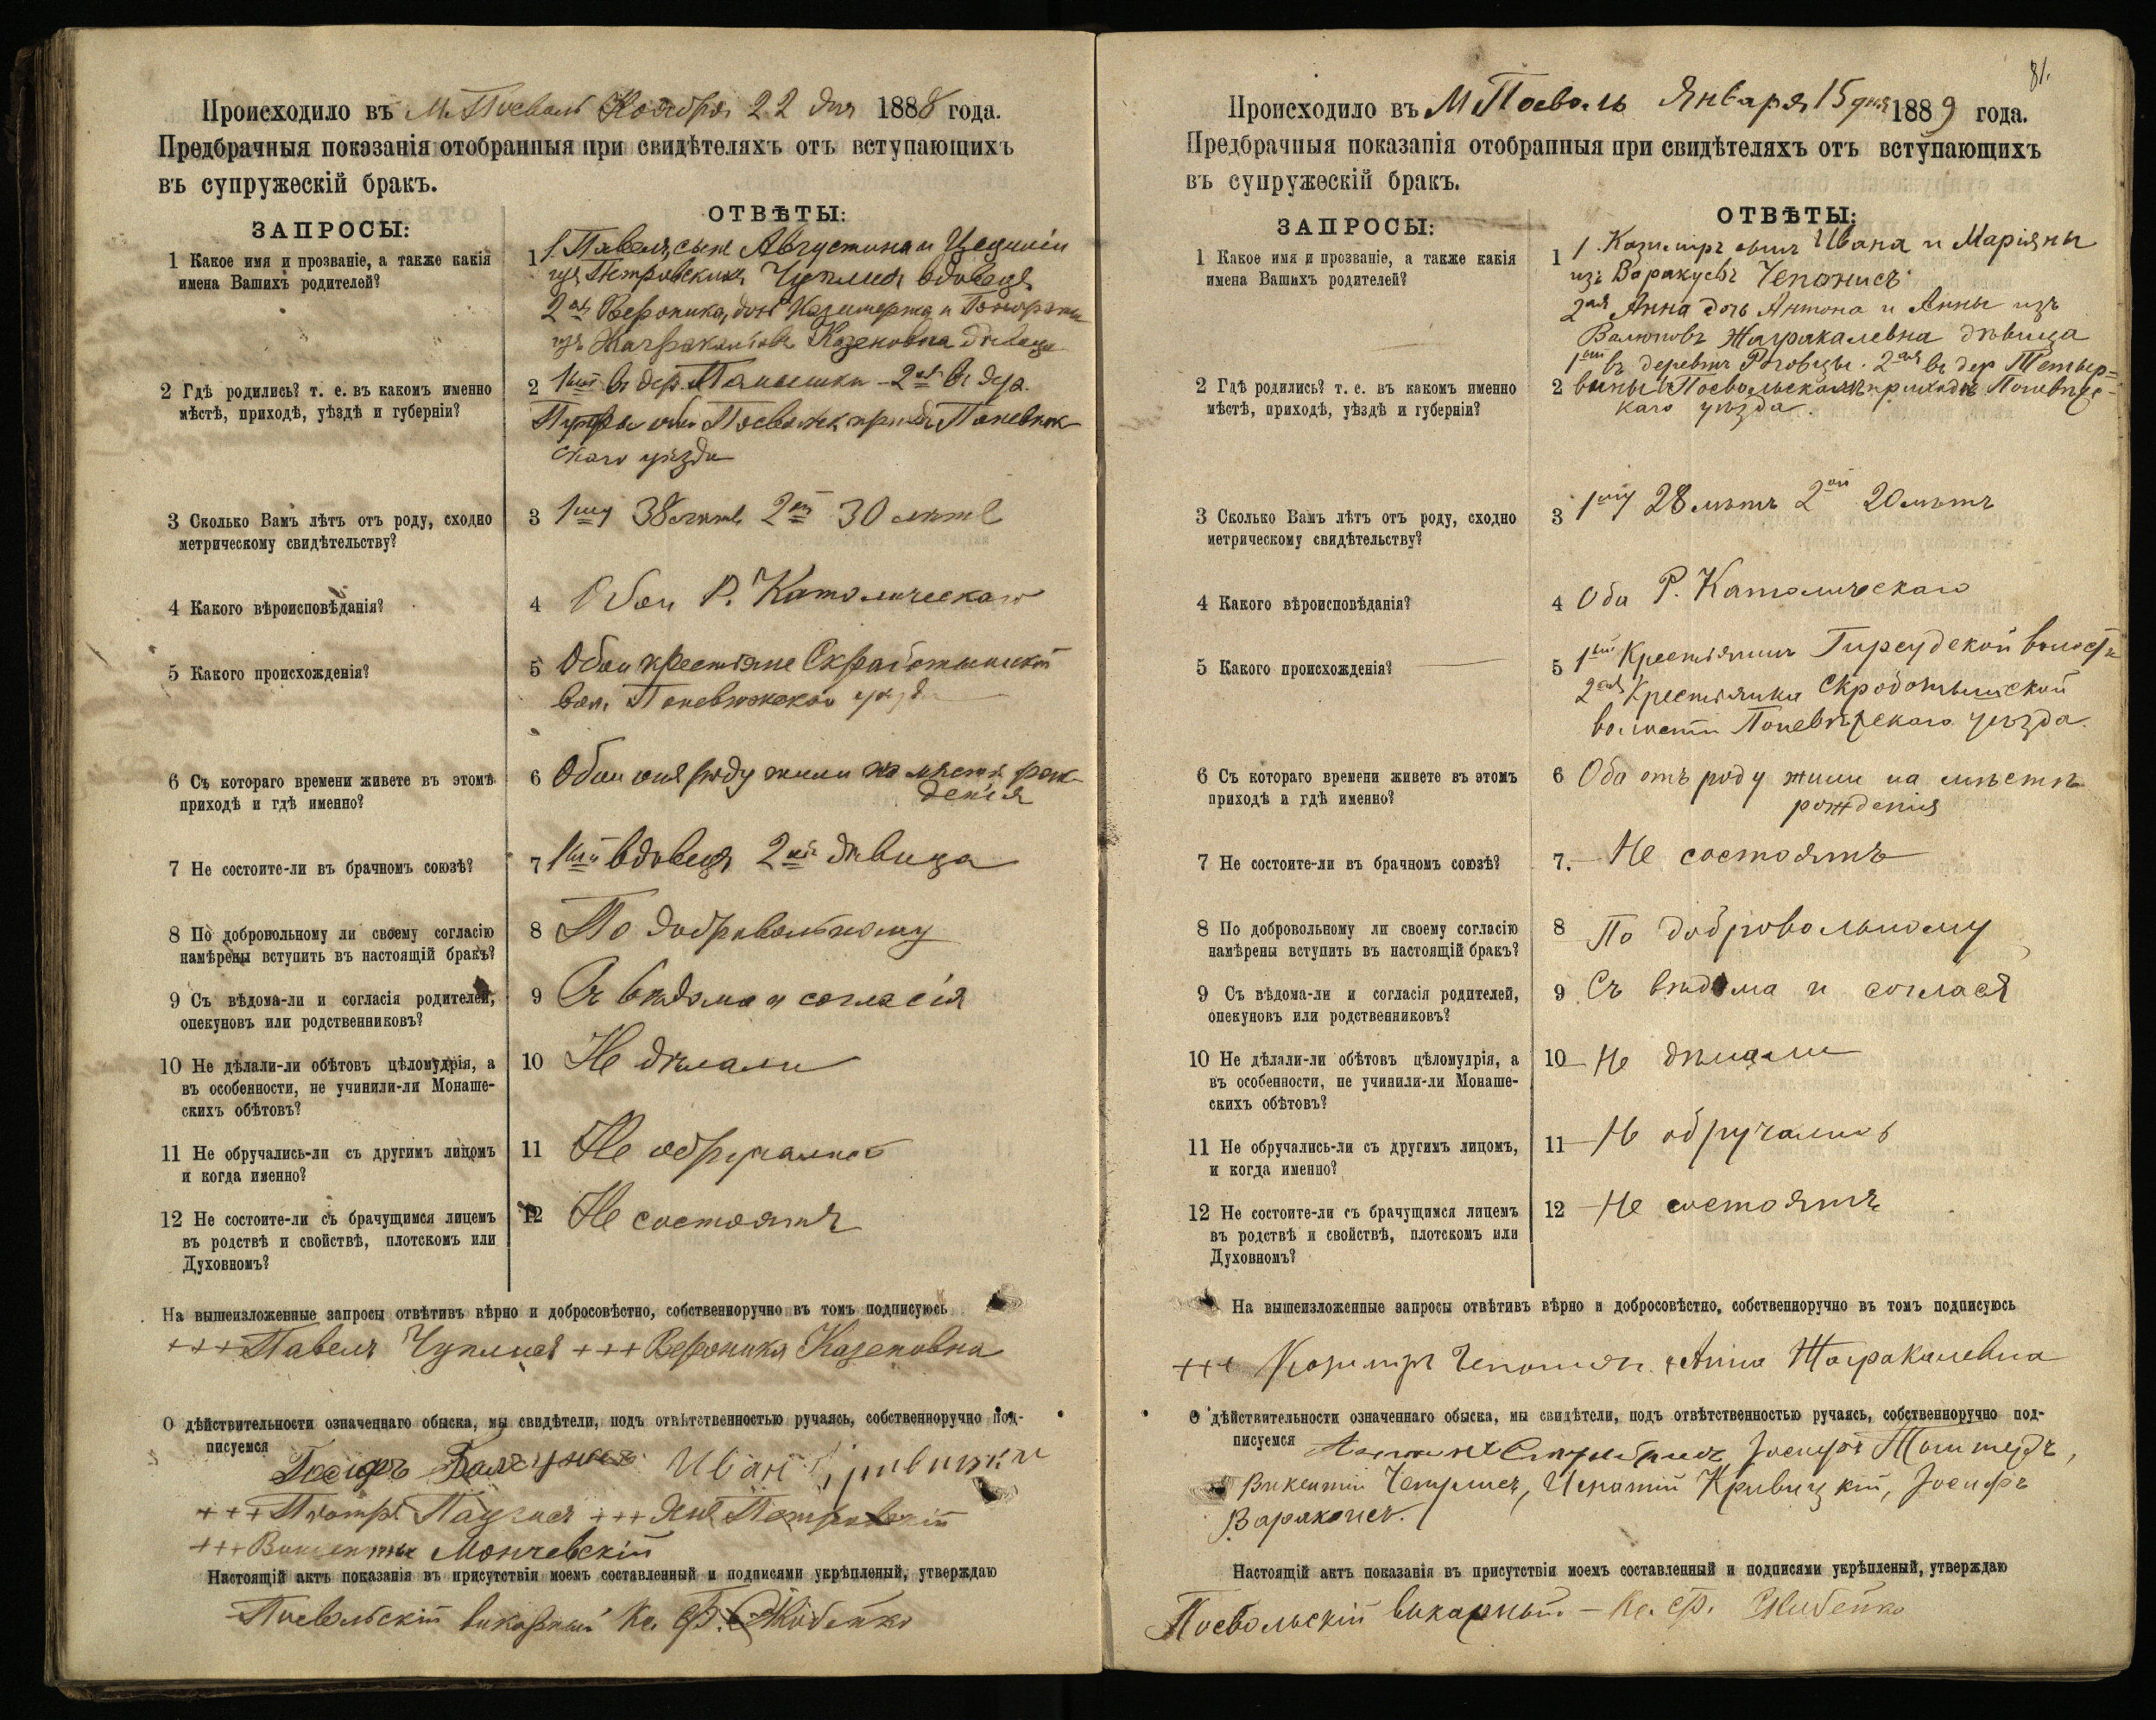 Происходило въ М. Посволь Ноября 22 дня 1888 года.
Предбрачныя показанія отобранныя при свидѣтеляхъ отъ вступающихъ
въ супружескій бракъ.
ЗАПРОСЫ:
ОТВѢТЫ:
1 Какое имя и прозваніе, а также какія
имена Вашихъ родителей?
1 1. Павелъ, сынъ Августина и Цециліи
изъ Петровскихъ Чуплисъ вдовецъ
2ая Вероника, дочь Казимержа и
изъ Казеновна дѣвица
2 Гдѣ родились? т. е. въ какомъ именно
мѣстѣ, приходѣ, уѣздѣ и губерніи?
2 1ый въ дер. 2ая въ дер.
оба Посвольск. прихода Поневѣж-
скаго уѣзда
3 Сколько Вамъ лѣтъ отъ роду, сходно
метрическому свидѣтельству?
3 1му 38 лѣтъ 2ой 30 лѣтъ
4 Какого вѣроисповѣданія?
4 Обои Р. Католическаго
5 Какого происхожденія?
5 Обои крестьяне Скработышской
вол. Поневѣжскаго уѣзда
6 Съ котораго времени живете въ этомъ
приходѣ и гдѣ именно?
6 Обои отъ роду жили на мѣстѣ рож-
денія
7 Не состоите-ли въ брачномъ союзѣ?
7 1ый вдовецъ 2ая дѣвица
8 По добровольному ли своему согласію
намѣрены вступить въ настоящій бракъ?
8 По добровольному
9 Съ вѣдома-ли и согласія родителей,
опекуновъ или родственниковъ?
9 Съ вѣдома и согласія
10 Не дѣлали-ли обѣтовъ цѣломудрія, а
въ особенности, не учинили-ли Монаше-
скихъ обѣтовъ?
10 Не дѣлали
11 Не обручались-ли съ другимъ лицомъ
и когда именно?
11 Не обручались
12 Не состоите-ли съ брачущимся лицемъ
въ родствѣ и свойствѣ, плотскомъ или
Духовномъ?
12 Не состоятъ
На вышеизложенные запросы отвѣтивъ вѣрно и добросовѣстно, собственноручно въ томъ подписуюсь
+++ Павелъ Чуплисъ +++ Вероника Казеновна
О дѣйствительности означеннаго обыска, мы свидѣтели, подъ отвѣтственностью ручаясь, собственноручно под-
писуемся
Іосифъ Иванъ
+++ Петръ +++ Янъ Петровскій
+++ Викентій Мончевскій
Настоящій актъ показанія въ присутствіи моемъ составленный и подписями укрѣпленый, утверждаю
Посвольскій викарный Кс. Ф. Скибейко
81.
Происходило въ М Посволь Января 15 дня 1889 года.
Предбрачныя показанія отобранныя при свидѣтеляхъ отъ вступающихъ
въ супружескій бракъ.
ЗАПРОСЫ:
ОТВѢТЫ:
1 Какое имя и прозваніе, а также какія
имена Вашихъ родителей?
1 1. Казимиръ сынъ Ивана и Маріяны
изъ Варакусъ Чепонисъ
2ая Анна дочь Антона и Анны изъ
Валюновъ Жагракалевна дѣвица
2 Гдѣ родились? т. е. въ какомъ именно
мѣстѣ, приходѣ, уѣздѣ и губерніи?
1ый въ деревнѣ Роговцы. 2ая въ дер Тетьер-
2 вины въ Посвольскомъ приходѣ Поневѣжс-
каго уѣзда.
3 Сколько Вамъ лѣтъ отъ роду, сходно
метрическому свидѣтельству?
3 1му 28 лѣтъ 2ой 20 лѣтъ
4 Какого вѣроисповѣданія?
4 Оба Р. Католическаго
5 Какого происхожденія?
5 1ый Крестьянинъ Гирсудской волости
2ая Крестьянка Скроботышской
волости Поневѣжскаго уѣзда.
6 Съ котораго времени живете въ этомъ
приходѣ и гдѣ именно?
6 Оба отъ роду жили на мѣстѣ
рожденія
7 Не состоите-ли въ брачномъ союзѣ?
7. Не состоятъ
8 По добровольному ли своему согласію
намѣрены вступить въ настоящій бракъ?
8 По добровольному
9 Съ вѣдома-ли и согласія родителей,
опекуновъ или родственниковъ?
9 Съ вѣдома и согласія
10 Не дѣлали-ли обѣтовъ цѣломудрія, а
въ особенности, не учинили-ли Монаше-
скихъ обѣтовъ?
10 Не дѣлали
11 Не обручались-ли съ другимъ лицомъ,
и когда именно?
11 Не обручались
12 Не состоите-ли съ брачущимся лицемъ
въ родствѣ и свойствѣ, плотскомъ или
Духовномъ?
12 Не состоятъ
На вышеизложенные запросы отвѣтивъ вѣрно и добросовѣстно, собственноручно въ томъ подписуюсь
+++ Казимиръ Чепонисъ Анна Жагракалевна
О дѣйствительности означеннаго обыска, мы свидѣтели, подъ отвѣтственностью ручаясь, собственноручно под-
писуемся Іосифъ
Викентій Игнатій Кривицкій, Іосифъ
Настоящій актъ показанія въ присутствія моемъ составленный и подписями укрѣпленый, утверждаю
Посвольскій викарный – Кс. Ф. Скибейко